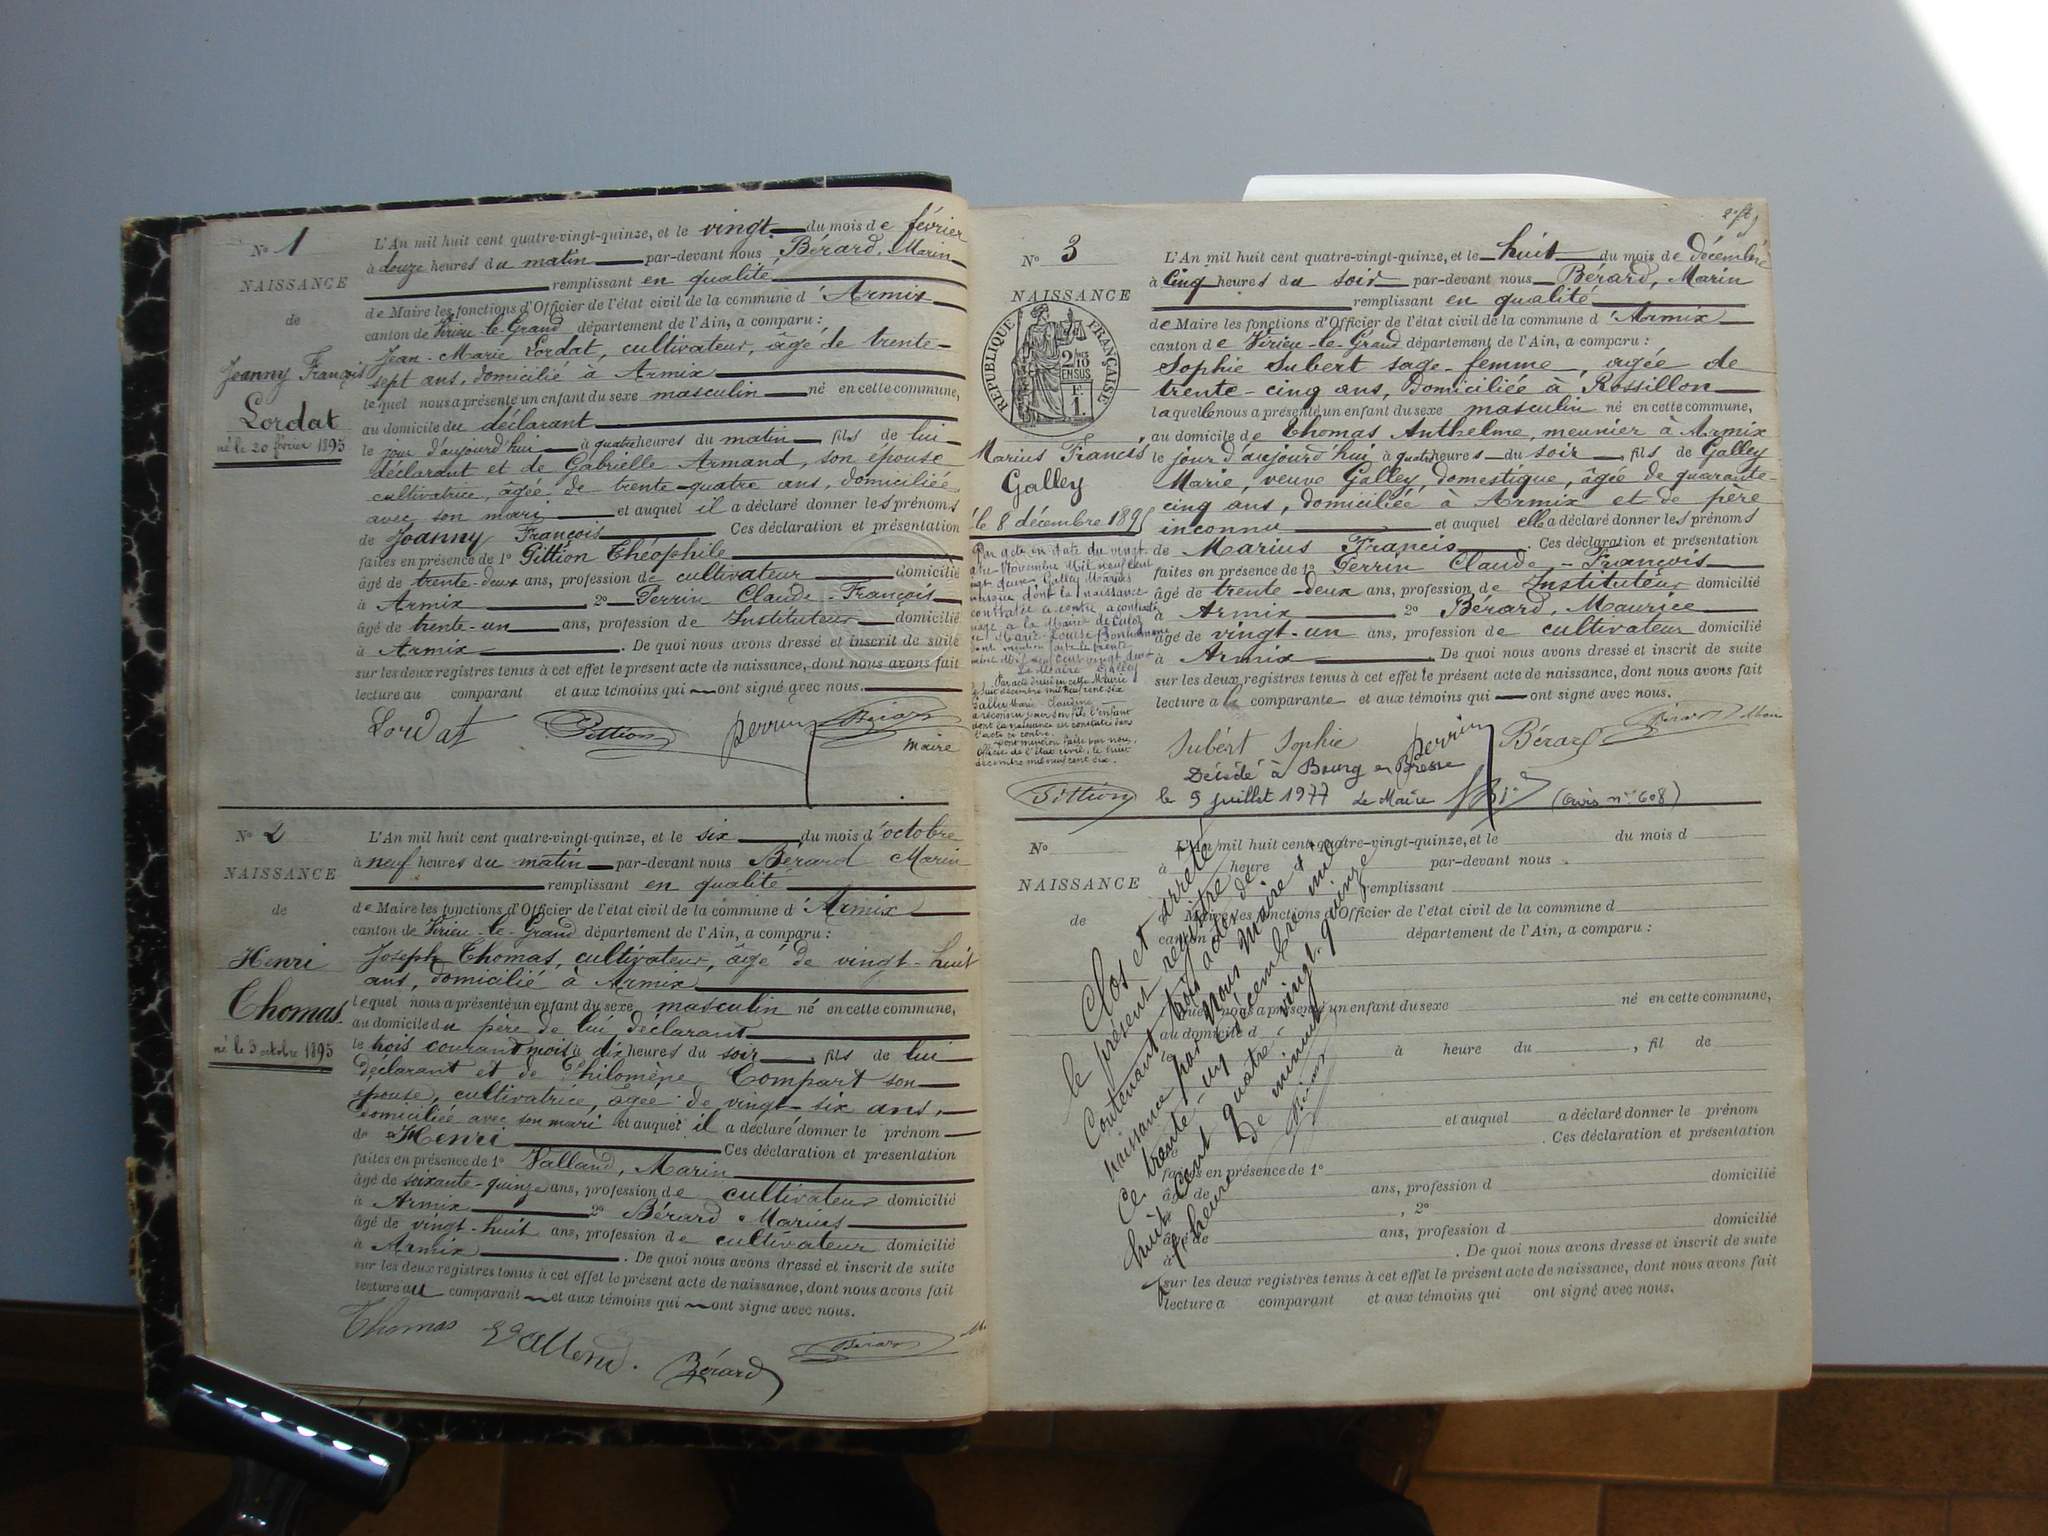 N° 1
NAISSANCE
de
Joanny François
Lordat
né le 20 février 1895
L'An mil huit cent quatre-vingt-quinze, et le vingt du mois de février
à douze heures du matin par-devant nous Bérard, Marin
remplissant en qualité
de Maire les fonctions d'Officier de l'état civil de la commune d'Armix
canton de Virieu-le-Grand département de l'Ain, a comparu :
Jean-Marie Lordat, cultivateur, âgé de trente-
sept ans, domicilié à Armix
lequel nous a présenté un enfant du sexe masculin né en cette commune,
au domicile du déclarant
le jour d'aujourd'hui à quatre heures du matin, fils de lui
déclarant et de Gabrielle Armand, son épouse
cultivatrice, âgée de trente-quatre ans, domiciliée
avec son mari et auquel il a déclaré donner les prénoms
de Joanny François Ces déclaration et présentation
faites en présence de 1° Pittion Théophile
âgé de trente-deux ans, profession de cultivateur domicilié
à Armix 2° Perrin Claude-François
âgé de trente-un ans, profession de Instituteur domicilié
à Armix . De quoi nous avons dressé et inscrit de suite
sur les deux registres tenus à cet effet le présent acte de naissance, dont nous avons fait
lecture au comparant et aux témoins qui ont signé avec nous.
Lordat Pittion Perrin Bérard
maire
N° 2
NAISSANCE
de
Henri
Thomas
né le 3 octobre 1895
L'An mil huit cent quatre-vingt-quinze, et le six du mois d'octobre
à neuf heures du matin par-devant nous Bérard Marin
remplissant en qualité
de Maire les fonctions d'Officier de l'état civil de la commune d'Armix
canton de Virieu-le-Grand département de l'Ain, a comparu :
Joseph Thomas, cultivateur, âgé de vingt-huit
ans, domicilié à Armix
lequel nous a présenté un enfant du sexe masculin né en cette commune,
au domicile du père de lui déclarant
le trois courant mois à dix heures du soir, fils de lui
déclarant et de Philomène Compart son
épouse, cultivatrice, âgée de vingt-six ans,
domiciliée avec son mari et auquel il a déclaré donner le prénom
de Henri Ces déclaration et présentation
faites en présence de 1° Valland, Marin
âgé de soixante-quinze ans, profession de cultivateur domicilié
à Armix 2° Bérard Marius
âgé de vingt-huit ans, profession de cultivateur domicilié
à Armix . De quoi nous avons dressé et inscrit de suite
sur les deux registres tenus à cet effet le présent acte de naissance, dont nous avons fait
lecture au comparant et aux témoins qui ont signé avec nous.
Thomas Valland. Bérard Bérard
N° 3
NAISSANCE
RÉPUBLIQUE FRANÇAISE
2/10 EN SUS
F. 1.
Marius Francis
Galley
le 8 décembre 1895
Par acte en date du vingt
Novembre Mil neuf cent
vingt deux Galley Marius
dont la naissance
constatée ci contre a contracté
à la Mairie de Culoz
Marie-Louise
mention faite le trente
neuf cent vingt deux
Le Maire Galley
Par acte dressé en cette Mairie
le huit décembre mil neuf cent six
Galley Marie Claudine
a reconnu pour son fils l'enfant
dont la naissance est constatée dans
l'acte ci contre.
dont mention faite par nous,
Officier de l'état civil, le huit
décembre mil neuf cent six.
Pittion
L'An mil huit cent quatre-vingt-quinze, et le huit du mois de décembre
à cinq heures du soir par-devant nous Bérard, Marin
remplissant en qualité
de Maire les fonctions d'Officier de l'état civil de la commune d'Armix
canton de Virieu-le-Grand département de l'Ain, a comparu :
Sophie Subert sage-femme, âgée de
trente-cinq ans, domiciliée à Rossillon
laquelle nous a présenté un enfant du sexe masculin né en cette commune,
au domicile de Thomas Anthelme, meunier à Armix
le jour d'aujourd'hui à quatre heures du soir, fils de Galley
Marie, veuve Galley, domestique, âgée de quarante-
cinq ans, domiciliée à Armix et de père
inconnu et auquel elle a déclaré donner les prénoms
de Marius Francis . Ces déclaration et présentation
faites en présence de 1° Perrin Claude-François
âgé de trente-deux ans, profession de Instituteur domicilié
à Armix 2° Bérard, Maurice
âgé de vingt-un ans, profession de cultivateur domicilié
à Armix . De quoi nous avons dressé et inscrit de suite
sur les deux registres tenus à cet effet le présent acte de naissance, dont nous avons fait
lecture à la comparante et aux témoins qui ont signé avec nous.
Subert Sophie Perrin Bérard Bérard Maire
Décédé à Bourg en Bresse
le 9 juillet 1977 Le Maire (avis n° 608)
N°
NAISSANCE
de
L'An mil huit cent quatre-vingt-quinze, et le du mois d
à heure d par-devant nous
remplissant
Maire les fonctions d'Officier de l'état civil de la commune d
canton département de l'Ain, a comparu :
quel nous a présenté un enfant du sexe né en cette commune,
au domicile d
le à heure du , fil de
et auquel a déclaré donner le prénom
. Ces déclaration et présentation
faites en présence de 1°
âgé de ans, profession d domicilié
, 2°
âgé de ans, profession d domicilié
à . De quoi nous avons dressé et inscrit de suite
sur les deux registres tenus à cet effet le présent acte de naissance, dont nous avons fait
lecture a comparant et aux témoins qui ont signé avec nous.
Clos et arrêté
le présent registre
Contenant trois actes de
naissance par Nous Maire
Ce trente-un décembre mil
huit cent quatre-vingt-quinze
à heure de minuit
Bérard